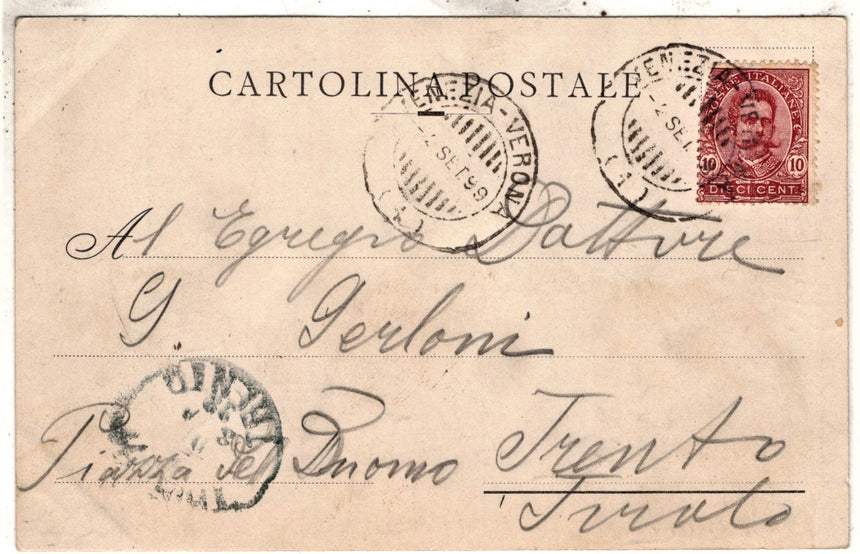 CARTOLINA POSTALE
VENEZIA-VERONA
2 SET 99
VENEZIA
2 SET
POSTE ITALIANE
10 10
DIECI CENT.
Al Egregio Dottore
G. Gerloni
Piazza del Duomo Trento
Tirolo